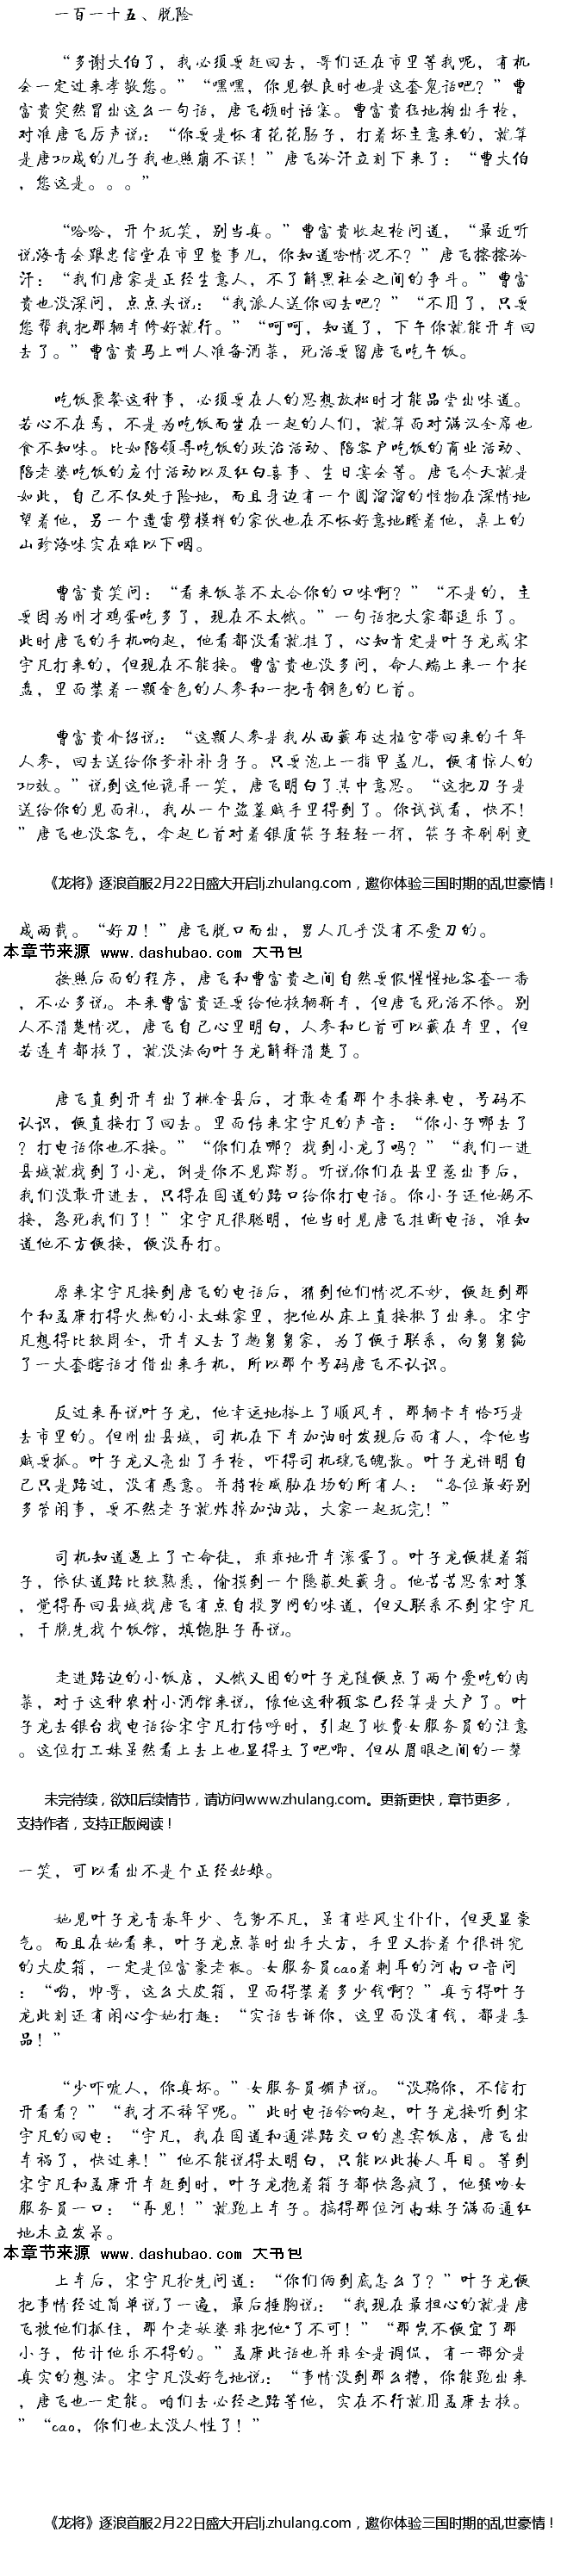 一百一十五、脱险
“多谢大伯了，我必须要赶回去，哥们还在市里等我呢，有机
会一定过来孝敬您。”“嘿嘿，你见铁良时也是这套鬼话吧？”曹
富贵突然冒出这么一句话，唐飞顿时语塞。曹富贵猛地掏出手枪，
对准唐飞厉声说：“你要是怀有花花肠子，打着坏主意来的，就算
是唐功成的儿子我也照崩不误！”唐飞冷汗立刻下来了：“曹大伯
，您这是。。。”
“哈哈，开个玩笑，别当真。”曹富贵收起枪问道，“最近听
说海青会跟忠信堂在市里整事儿，你知道啥情况不？”唐飞擦擦冷
汗：“我们唐家是正经生意人，不了解黑社会之间的争斗。”曹富
贵也没深问，点点头说：“我派人送你回去吧？”“不用了，只要
您帮我把那辆车修好就行。”“呵呵，知道了，下午你就能开车回
去了。”曹富贵马上叫人准备酒菜，死活要留唐飞吃午饭。
吃饭聚餐这种事，必须要在人的思想放松时才能品尝出味道。
若心不在焉，不是为吃饭而坐在一起的人们，就算面对满汉全席也
食不知味。比如陪领导吃饭的政治活动、陪客户吃饭的商业活动、
陪老婆吃饭的应付活动以及红白喜事、生日宴会等。唐飞今天就是
如此，自己不仅处于险地，而且身边有一个圆溜溜的怪物在深情地
望着他，另一个遭雷劈模样的家伙也在不怀好意地瞪着他，桌上的
山珍海味实在难以下咽。
曹富贵笑问：“看来饭菜不太合你的口味啊？”“不是的，主
要因为刚才鸡蛋吃多了，现在不太饿。”一句话把大家都逗乐了。
此时唐飞的手机响起，他看都没看就挂了，心知肯定是叶子龙或宋
宇凡打来的，但现在不能接。曹富贵也没多问，命人端上来一个托
盘，里面装着一颗金色的人参和一把青铜色的匕首。
曹富贵介绍说：“这颗人参是我从西藏布达拉宫带回来的千年
人参，回去送给你爹补补身子。只要泡上一指甲盖儿，便有惊人的
功效。”说到这他诡异一笑，唐飞明白了其中意思。“这把刀子是
送给你的见面礼，我从一个盗墓贼手里得到了。你试试看，快不！
”唐飞也没客气，拿起匕首对着银质筷子轻轻一挥，筷子齐刷刷变
《龙将》逐浪首服2月22日盛大开启lj.zhulang.com，邀你体验三国时期的乱世豪情！
成两截。“好刀！”唐飞脱口而出，男人几乎没有不爱刀的。
本章节来源 www.dashubao.com 大书包
按照后面的程序，唐飞和曹富贵之间自然要假惺惺地客套一番
，不必多说。本来曹富贵还要给他换辆新车，但唐飞死活不依。别
人不清楚情况，唐飞自己心里明白，人参和匕首可以藏在车里，但
若连车都换了，就没法向叶子龙解释清楚了。
唐飞直到开车出了桃金县后，才敢查看那个未接来电，号码不
认识，便直接打了回去。里面传来宋宇凡的声音：“你小子哪去了
？打电话你也不接。”“你们在哪？找到小龙了吗？”“我们一进
县城就找到了小龙，倒是你不见踪影。听说你们在县里惹出事后，
我们没敢开进去，只得在国道的路口给你打电话。你小子还他妈不
接，急死我们了！”宋宇凡很聪明，他当时见唐飞挂断电话，准知
道他不方便接，便没再打。
原来宋宇凡接到唐飞的电话后，猜到他们情况不妙，便赶到那
个和孟康打得火热的小太妹家里，把他从床上直接揪了出来。宋宇
凡想得比较周全，开车又去了趟舅舅家，为了便于联系，向舅舅编
了一大套瞎话才借出来手机，所以那个号码唐飞不认识。
反过来再说叶子龙，他幸运地搭上了顺风车，那辆卡车恰巧是
去市里的。但刚出县城，司机在下车加油时发现后面有人，拿他当
贼要抓。叶子龙又亮出了手枪，吓得司机魂飞魄散。叶子龙讲明自
己只是路过，没有恶意。并持枪威胁在场的所有人：“各位最好别
多管闲事，要不然老子就炸掉加油站，大家一起玩完！”
司机知道遇上了亡命徒，乖乖地开车滚蛋了。叶子龙便提着箱
子，依仗道路比较熟悉，偷摸到一个隐蔽处藏身。他苦苦思索对策
，觉得再回县城找唐飞有点自投罗网的味道，但又联系不到宋宇凡
，干脆先找个饭馆，填饱肚子再说。
走进路边的小饭店，又饿又困的叶子龙随便点了两个爱吃的肉
菜，对于这种农村小酒馆来说，像他这种顾客已经算是大户了。叶
子龙去银台找电话给宋宇凡打传呼时，引起了收费女服务员的注意
。这位打工妹虽然看上去上也显得土了吧唧，但从眉眼之间的一颦
未完待续，欲知后续情节，请访问www.zhulang.com。更新更快，章节更多，
支持作者，支持正版阅读！
一笑，可以看出不是个正经姑娘。
她见叶子龙青春年少、气势不凡，虽有些风尘仆仆，但更显豪
气。而且在她看来，叶子龙点菜时出手大方，手里又拎着个很讲究
的大皮箱，一定是位富豪老板。女服务员cao着刺耳的河南口音问
：“哟，帅哥，这么大皮箱，里面得装着多少钱啊？”真亏得叶子
龙此刻还有闲心拿她打趣：“实话告诉你，这里面没有钱，都是毒
品！”
“少吓唬人，你真坏。”女服务员媚声说。“没骗你，不信打
开看看？”“我才不稀罕呢。”此时电话铃响起，叶子龙接听到宋
宇凡的回电：“宇凡，我在国道和通港路交口的惠宾饭店，唐飞出
车祸了，快过来！”他不能说得太明白，只能以此掩人耳目。等到
宋宇凡和孟康开车赶到时，叶子龙抱着箱子都快急疯了，他强吻女
服务员一口：“再见！”就跑上车子。搞得那位河南妹子满面通红
地木立发呆。
本章节来源 www.dashubao.com 大书包
上车后，宋宇凡抢先问道：“你们俩到底怎么了？”叶子龙便
把事情经过简单说了一遍，最后捶胸说：“我现在最担心的就是唐
飞被他们抓住，那个老妖婆非把他·了不可！”“那岂不便宜了那
小子，估计他乐不得的。”孟康此话也并非全是调侃，有一部分是
真实的想法。宋宇凡没好气地说：“事情没到那么糟，你能跑出来
，唐飞也一定能。咱们去必经之路等他，实在不行就用孟康去换。
”“cao，你们也太没人性了！”
《龙将》逐浪首服2月22日盛大开启lj.zhulang.com，邀你体验三国时期的乱世豪情！